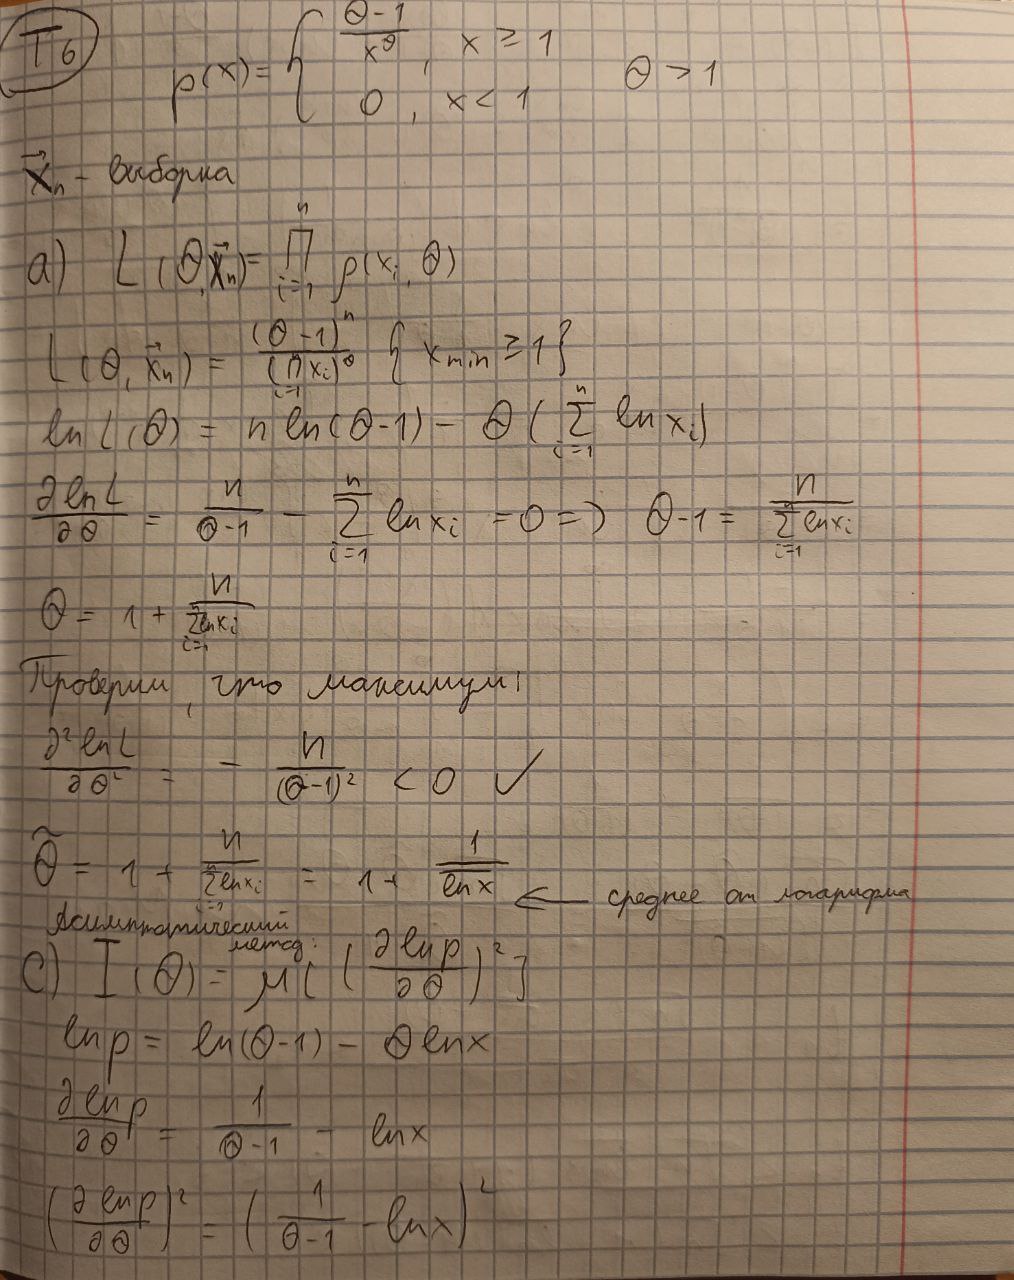 T6
p(x) = { (θ-1)/x^θ , x ≥ 1
0 , x < 1
θ > 1
x⃗n - выборка
a) L(θ, x⃗n) = ∏_{i=1}^{n} p(xi, θ)
L(θ, x⃗n) = (θ-1)^n / (∏_{i=1} xi)^θ { xmin ≥ 1 }
ln L(θ) = n ln(θ-1) - θ ( ∑_{i=1}^{n} ln xi )
∂lnL/∂θ = n/(θ-1) - ∑_{i=1}^{n} ln xi = 0 => θ-1 = n / ∑_{i=1}^{n} ln xi
θ = 1 + n / ∑_{i=1}^{n} ln xi
Проверим, что максимум:
∂²lnL/∂θ² = - n/(θ-1)² < 0 ✓
θ̃ = 1 + n / ∑_{i=1}^{n} ln xi = 1 + 1 / \overline{ln x} ← среднее от логарифма
Асимптотический
метод:
c) I(θ) = M[ (∂lnp/∂θ)² ]
ln p = ln(θ-1) - θ ln x
∂lnp/∂θ = 1/(θ-1) - ln x
(∂lnp/∂θ)² = (1/(θ-1) - ln x)²